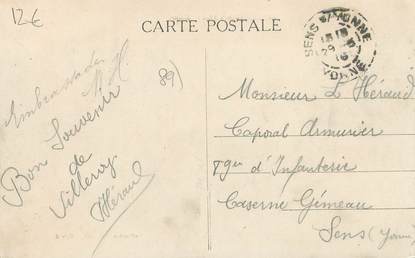 12€
CARTE POSTALE
SENS YONNE
YONNE
89)
Bon Souvenir
de
Villeroy
Hérault
Monsieur L Hérault
Caporal Armurier
d'Infanterie
Caserne Gémeau
Sens (Yonne)